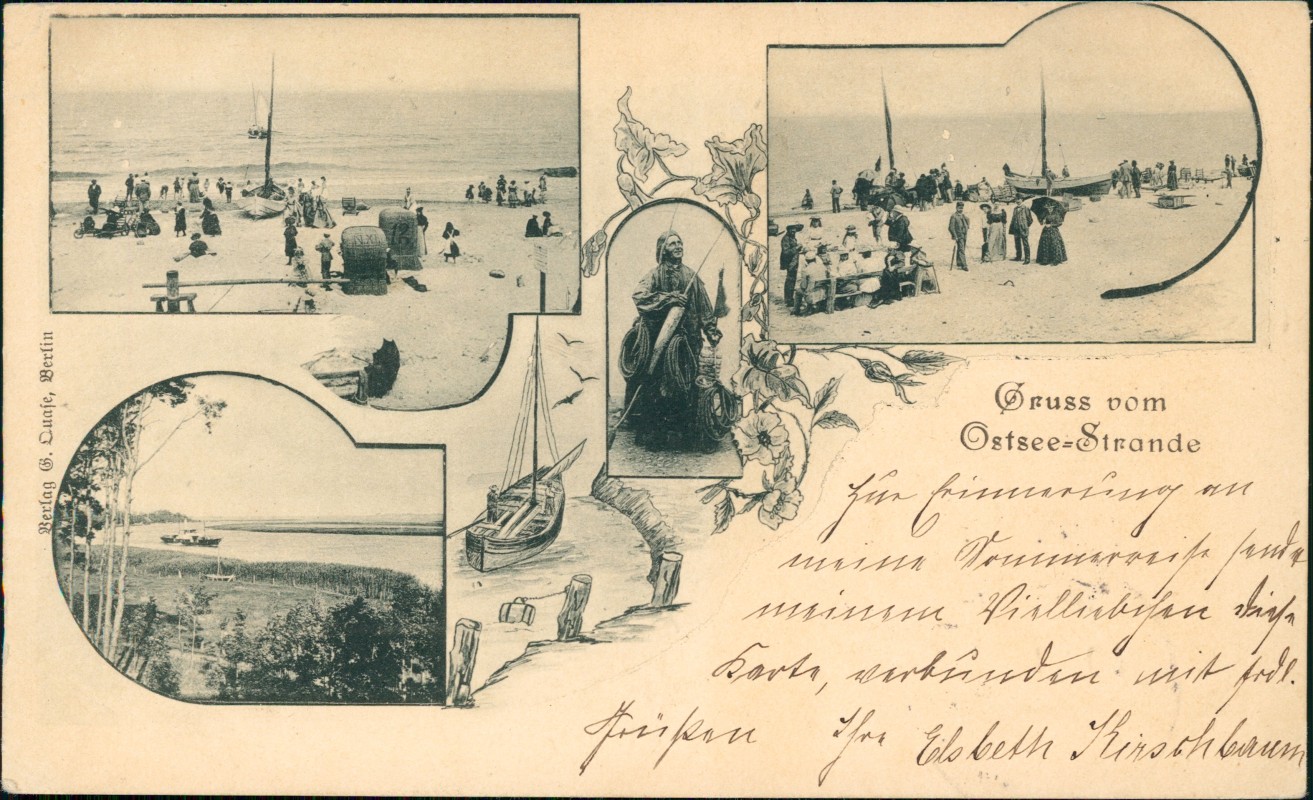 Verlag G. Quase, Berlin
Gruss vom
Ostsee-Strande
Zur Erinnerung an
meine Sommerreise sende
meinem Vielliebchen diese
Karte, verbunden mit frdl.
Grüßen Ihre Elsbeth Kirschbaum